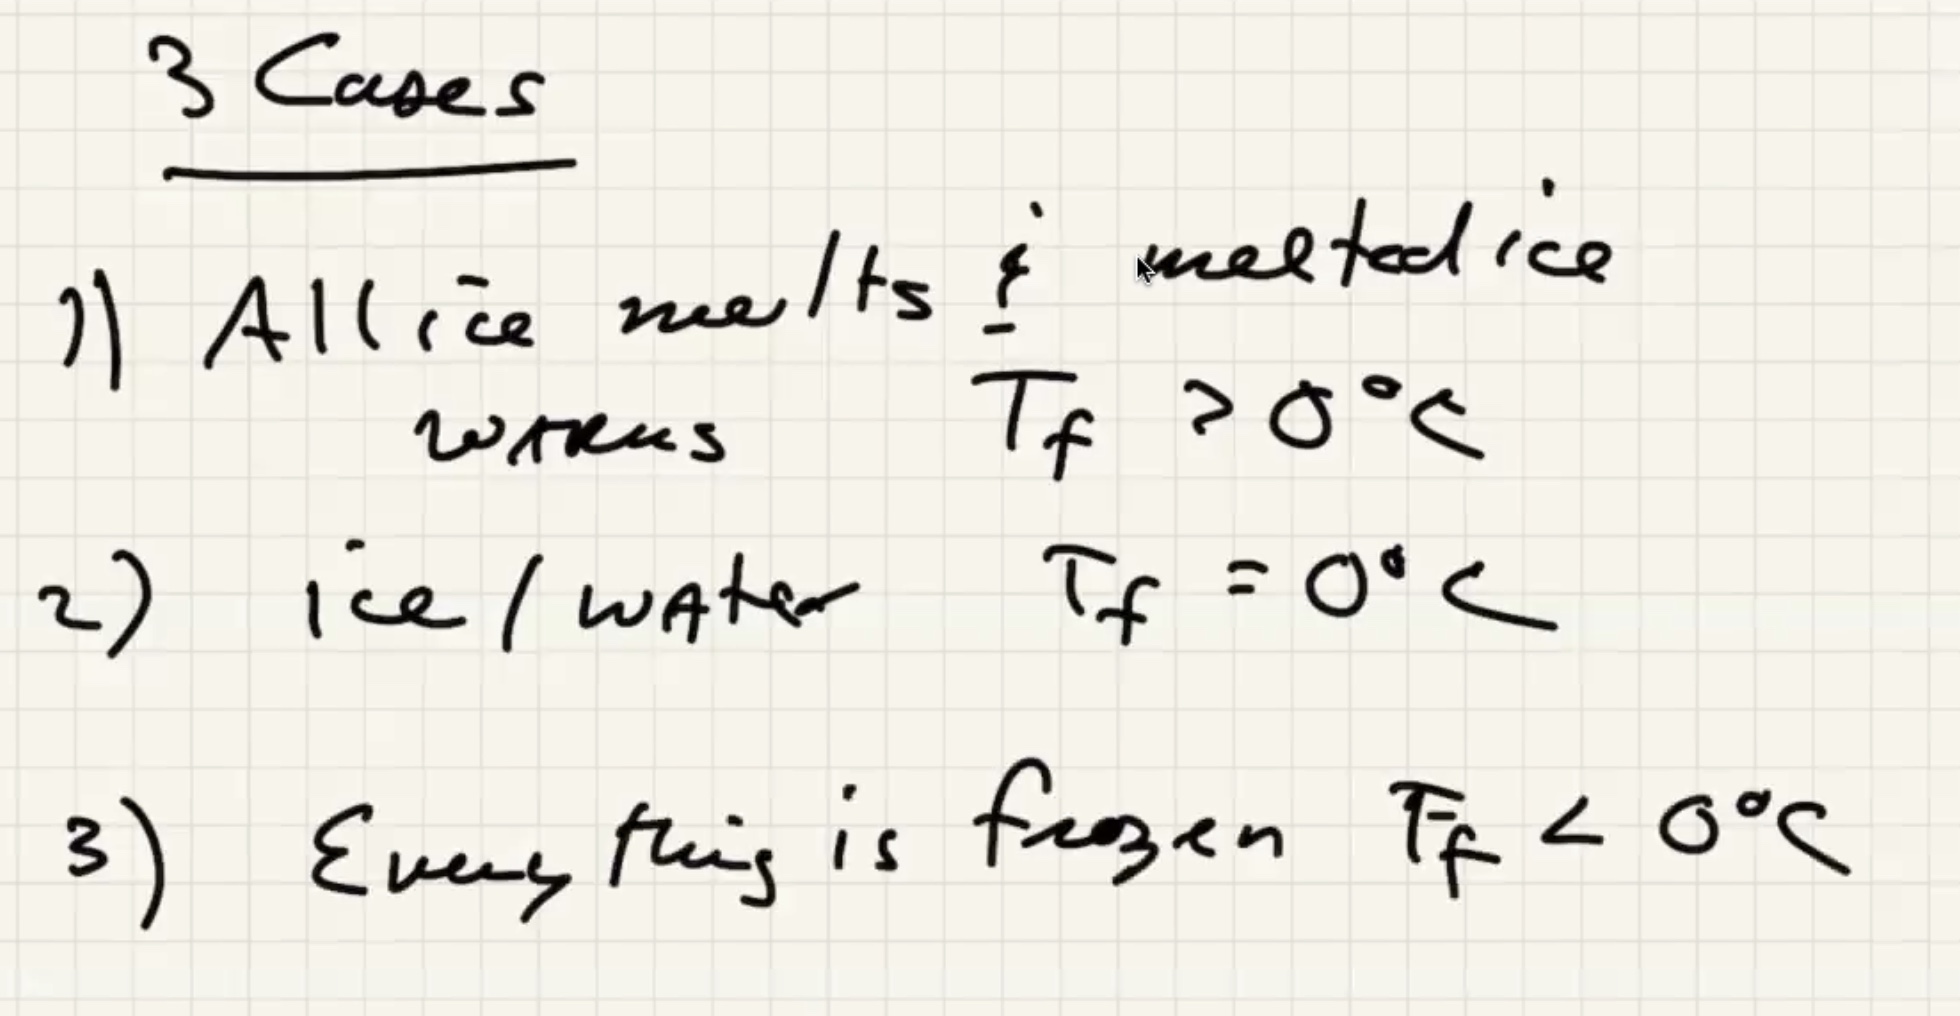 3 Cases
1) All ice melts & melted ice
warms Tf > 0°C
2) ice / water Tf = 0°C
3) Everything is frozen Tf < 0°C